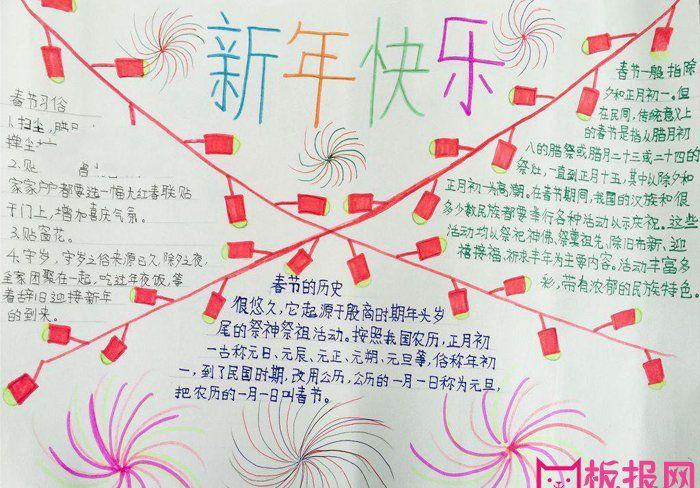 新年快乐
春节习俗
1.扫尘,腊月
掸尘
2.贴
家家户户都要选一幅大红春联贴
于门上,增加喜庆气氛。
3.贴窗花。
4.守岁,守岁之俗来源已久,除夕之夜,
全家团聚在一起,吃过年夜饭,等
着辞旧迎接新年
的到来。
春节的历史
很悠久,它起源于殷商时期年头岁
尾的祭神祭祖活动。按照我国农历,正月初
一古称元日、元辰、元正、元朔、元旦等,俗称年初
一,到了民国时期,改用公历,公历的一月一日称为元旦,
把农历的一月一日叫春节。
春节一般指除
夕和正月初一。但
在民间,传统意义上
的春节是指从腊月初
八的腊祭或腊月二十三或二十四的
祭灶,一直到正月十五,其中以除夕和
正月初一为高潮。在春节期间,我国的汉族和很
多少数民族都要举行各种活动以示庆祝。这些
活动均以祭祀神佛、祭奠祖先、除旧布新、迎
禧接福、祈求丰年为主要内容。活动丰富多
彩,带有浓郁的民族特色。
板报网